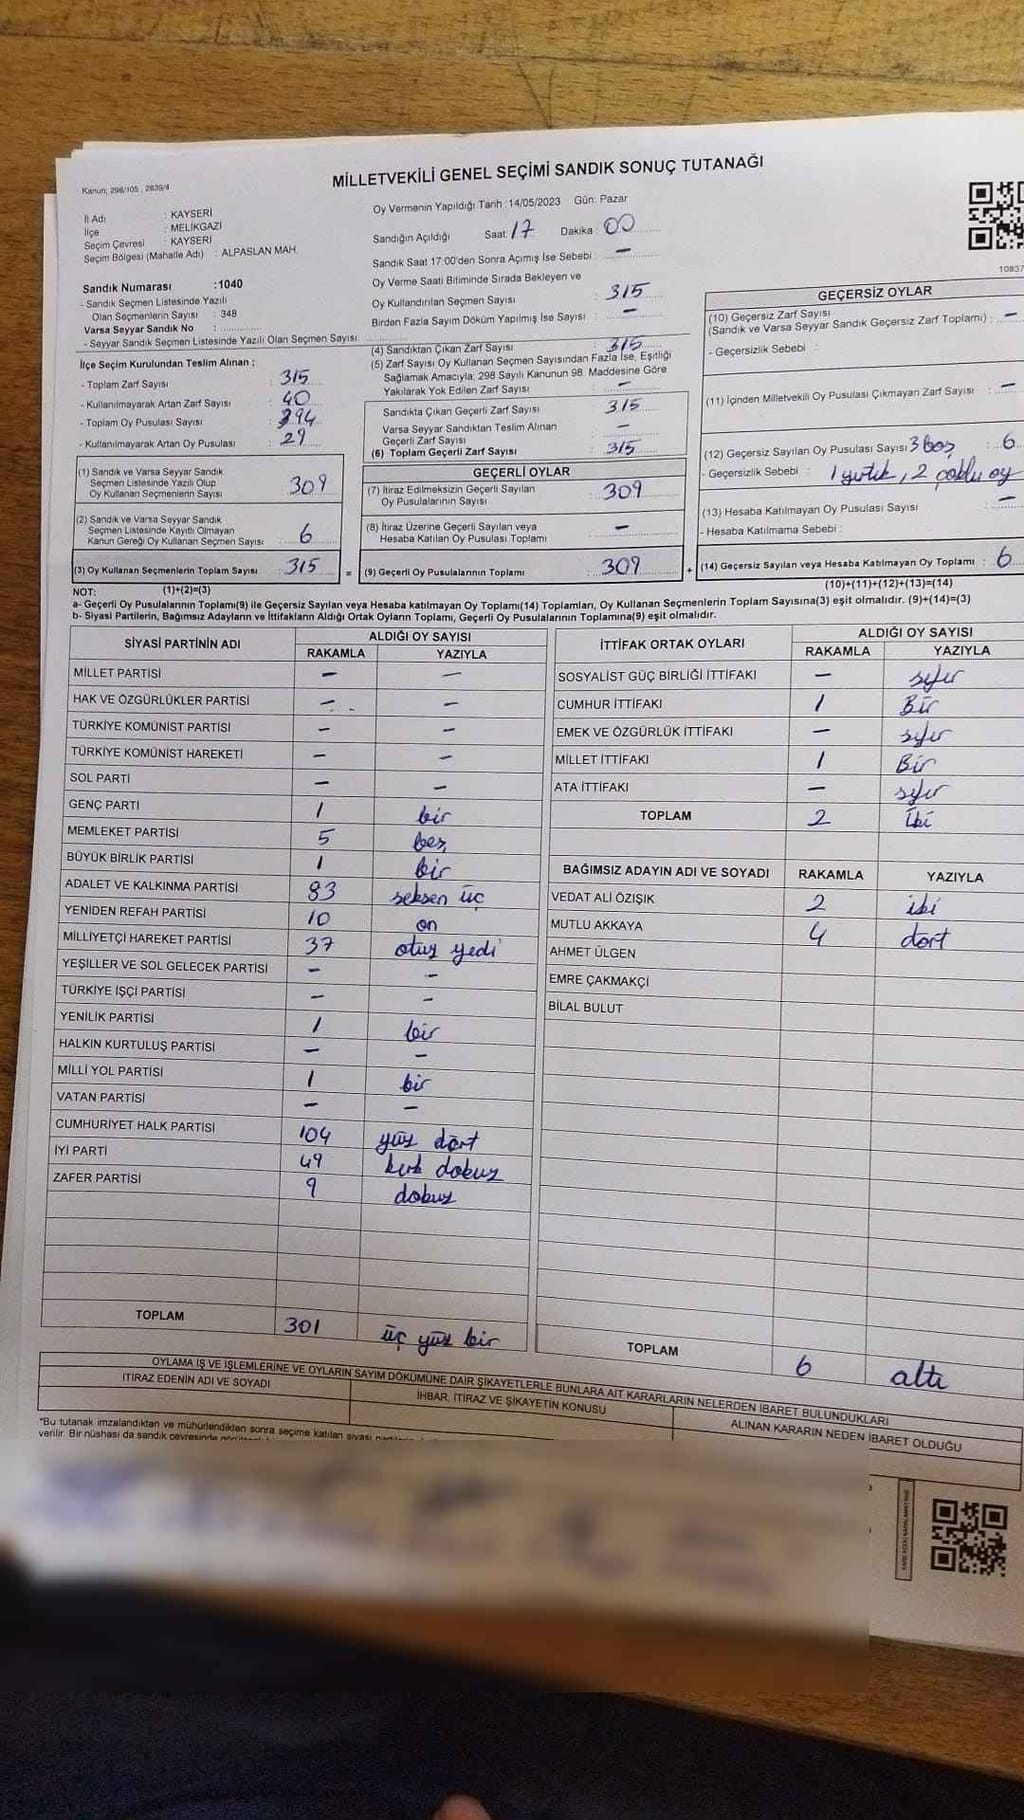 MİLLETVEKİLİ GENEL SEÇİMİ SANDIK SONUÇ TUTANAĞI
Kanun; 298/105 , 2839/4
İl Adı : KAYSERİ
İlçe : MELİKGAZİ
Seçim Çevresi : KAYSERİ
Seçim Bölgesi (Mahalle Adı) : ALPASLAN MAH.
Oy Vermenin Yapıldığı Tarih :14/05/2023 Gün: Pazar
Sandığın Açıldığı Saat: 17 Dakika : 00
Sandık Saat 17:00'den Sonra Açımış İse Sebebi : –
Oy Verme Saati Bitiminde Sırada Bekleyen ve
Oy Kullandırılan Seçmen Sayısı : 315
Birden Fazla Sayım Döküm Yapılmış İse Sayısı : –
Sandık Numarası :1040
- Sandık Seçmen Listesinde Yazılı
Olan Seçmenlerin Sayısı : 348
Varsa Seyyar Sandık No :
- Seyyar Sandık Seçmen Listesinde Yazılı Olan Seçmen Sayısı
İlçe Seçim Kurulundan Teslim Alınan ;
- Toplam Zarf Sayısı : 315
- Kullanılmayarak Artan Zarf Sayısı : 40
- Toplam Oy Pusulası Sayısı : 394
- Kullanılmayarak Artan Oy Pusulası : 29
(1) Sandık ve Varsa Seyyar Sandık
Seçmen Listesinde Yazılı Olup
Oy Kullanan Seçmenlerin Sayısı : 309
(2) Sandık ve Varsa Seyyar Sandık
Seçmen Listesinde Kayıtlı Olmayan
Kanun Gereği Oy Kullanan Seçmen Sayısı : 6
(3) Oy Kullanan Seçmenlerin Toplam Sayısı : 315
(1)+(2)=(3)
(4) Sandıktan Çıkan Zarf Sayısı : 315
(5) Zarf Sayısı Oy Kullanan Seçmen Sayısından Fazla İse, Eşitliği
Sağlamak Amacıyla; 298 Sayılı Kanunun 98. Maddesine Göre
Yakılarak Yok Edilen Zarf Sayısı : –
Sandıkta Çıkan Geçerli Zarf Sayısı : 315
Varsa Seyyar Sandıktan Teslim Alınan
Geçerli Zarf Sayısı : –
(6) Toplam Geçerli Zarf Sayısı : 315
GEÇERLİ OYLAR
(7) İtiraz Edilmeksizin Geçerli Sayılan
Oy Pusulalarının Sayısı : 309
(8) İtiraz Üzerine Geçerli Sayılan veya
Hesaba Katılan Oy Pusulası Toplamı : –
= (9) Geçerli Oy Pusulalarının Toplamı : 309
10837
GEÇERSİZ OYLAR
(10) Geçersiz Zarf Sayısı
(Sandık ve Varsa Seyyar Sandık Geçersiz Zarf Toplamı) : –
- Geçersizlik Sebebi :
(11) İçinden Milletvekili Oy Pusulası Çıkmayan Zarf Sayısı : –
(12) Geçersiz Sayılan Oy Pusulası Sayısı 3 boş : 6
- Geçersizlik Sebebi : 1 yırtık, 2 çoklu oy
(13) Hesaba Katılmayan Oy Pusulası Sayısı : –
- Hesaba Katılmama Sebebi :
+ (14) Geçersiz Sayılan veya Hesaba Katılmayan Oy Toplamı : 6
(10)+(11)+(12)+(13)=(14)
NOT:
a- Geçerli Oy Pusulalarının Toplamı(9) ile Geçersiz Sayılan veya Hesaba katılmayan Oy Toplamı(14) Toplamları, Oy Kullanan Seçmenlerin Toplam Sayısına(3) eşit olmalıdır. (9)+(14)=(3)
b- Siyasi Partilerin, Bağımsız Adayların ve İttifakların Aldığı Ortak Oyların Toplamı, Geçerli Oy Pusulalarının Toplamına(9) eşit olmalıdır.
SİYASİ PARTİNİN ADI ALDIĞI OY SAYISI
RAKAMLA YAZIYLA
MİLLET PARTİSİ – –
HAK VE ÖZGÜRLÜKLER PARTİSİ – –
TÜRKİYE KOMÜNİST PARTİSİ – –
TÜRKİYE KOMÜNİST HAREKETİ – –
SOL PARTİ – –
GENÇ PARTİ 1 bir
MEMLEKET PARTİSİ 5 beş
BÜYÜK BİRLİK PARTİSİ 1 bir
ADALET VE KALKINMA PARTİSİ 83 seksen üç
YENİDEN REFAH PARTİSİ 10 on
MİLLİYETÇİ HAREKET PARTİSİ 37 otuz yedi
YEŞİLLER VE SOL GELECEK PARTİSİ – –
TÜRKİYE İŞÇİ PARTİSİ – –
YENİLİK PARTİSİ 1 bir
HALKIN KURTULUŞ PARTİSİ – –
MİLLİ YOL PARTİSİ 1 bir
VATAN PARTİSİ – –
CUMHURİYET HALK PARTİSİ 104 yüz dört
İYİ PARTİ 49 kırk dokuz
ZAFER PARTİSİ 9 dokuz
TOPLAM 301 üç yüz bir
İTTİFAK ORTAK OYLARI ALDIĞI OY SAYISI
RAKAMLA YAZIYLA
SOSYALİST GÜÇ BİRLİĞİ İTTİFAKI – sıfır
CUMHUR İTTİFAKI 1 Bir
EMEK VE ÖZGÜRLÜK İTTİFAKI – sıfır
MİLLET İTTİFAKI 1 Bir
ATA İTTİFAKI – sıfır
TOPLAM 2 iki
BAĞIMSIZ ADAYIN ADI VE SOYADI RAKAMLA YAZIYLA
VEDAT ALİ ÖZIŞIK 2 iki
MUTLU AKKAYA 4 dört
AHMET ÜLGEN
EMRE ÇAKMAKÇİ
BİLAL BULUT
TOPLAM 6 altı
OYLAMA İŞ VE İŞLEMLERİNE VE OYLARIN SAYIM DÖKÜMÜNE DAİR ŞİKAYETLERLE BUNLARA AİT KARARLARIN NELERDEN İBARET BULUNDUKLARI
İTİRAZ EDENİN ADI VE SOYADI İHBAR, İTİRAZ VE ŞİKAYETİN KONUSU ALINAN KARARIN NEDEN İBARET OLDUĞU
*Bu tutanak imzalandıktan ve mühürlendikten sonra seçime katılan siyasi
verilir. Bir nüshası da sandık çevresinde